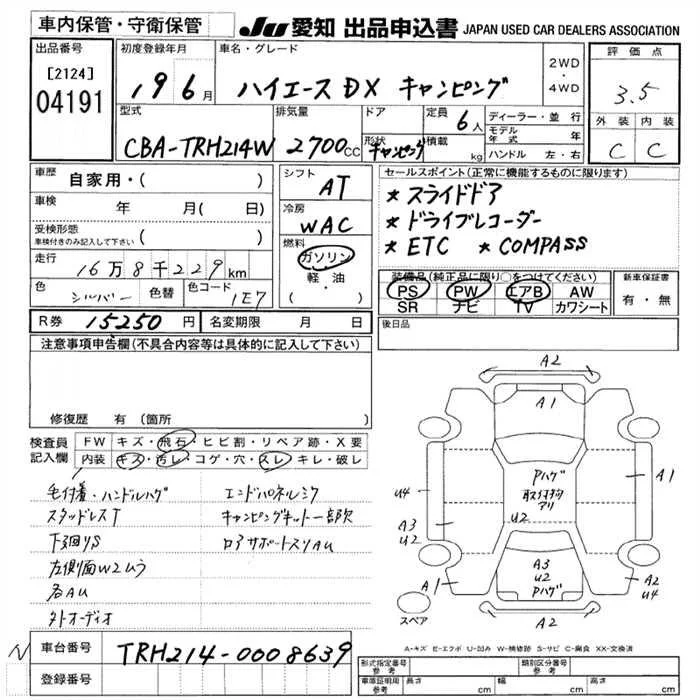 車内保管・守衛保管
JU 愛知 出品申込書 JAPAN USED CAR DEALERS ASSOCIATION
出品番号
[2124]
04191
初度登録年月
19 6月
車名・グレード
ハイエース DX キャンピング
2WD
・
4WD
評価点
3.5
外装 内装
C C
型式
CBA-TRH214W
排気量
2700cc
ドア
形状
キャンピング
定員
6人
積載
kg
ディーラー・並行
モデル年式 年
ハンドル 左・右
車歴
自家用・( )
車検
年 月( 日)
受検形態
車検付きのみ記入して下さい
( )
走行
16万8千229km
色
シルバー
色替
色コード
1E7
シフト
AT
冷房
WAC
燃料
ガソリン
軽・油
( ・ )
セールスポイント(正常に機能するものに限ります)
* スライドドア
* ドライブレコーダー
* ETC * COMPASS
装備品(純正品に限り○をつけてください)
PS PW エアB AW
SR ナビ TV カワシート
新車保証書
有・無
後日品
R券 15250円
名変期限 月 日
注意事項申告欄(不具合内容等は具体的に記入して下さい)
修復歴 有 (箇所 )
検査員
記入欄
FW キズ・飛石・ヒビ割・リペア跡・X要
内装 キズ・汚レ・コゲ・穴・スレ・キレ・破レ
毛付着・ハンドルハゲ
スタッドレスT
下廻りS
左側面W2ムラ
各AU
外オーディオ
エンドパネルシワ
キャンピングキット一部欠
ロアサポートスリAU
A2
A1
Pハゲ
取付物
アリ
U2
A1
U4
A3
U2
A3
U2
Pハゲ
A1
A2
U4
A2
スペア
A-キズ E-エクボ U-凹み W-補修跡 S-サビ C-腐食 XX-交換済
N
車台番号
TRH214-0008639
登録番号
形式指定番号
参考
類別区分番号
参考
車庫証明用
参考
長さ cm
幅 cm
高さ cm